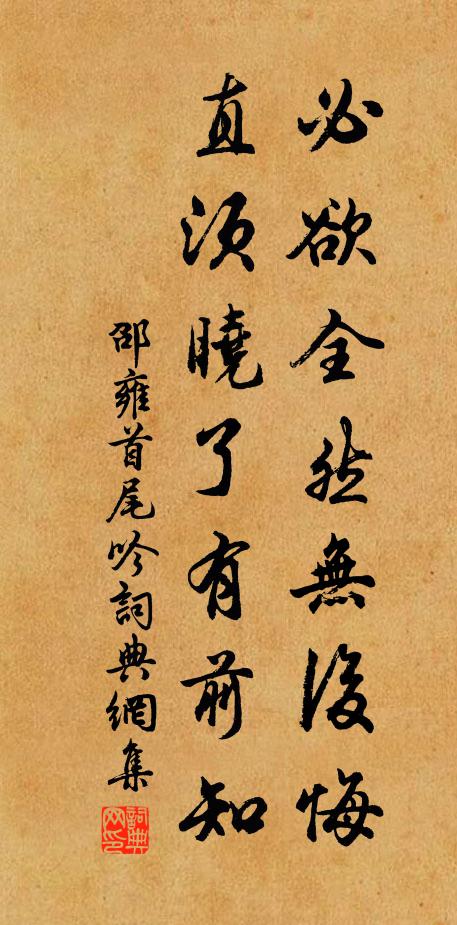 必欲全然無後悔
直須曉了有前知
邵雍首尾吟詞典網集
詞典网印